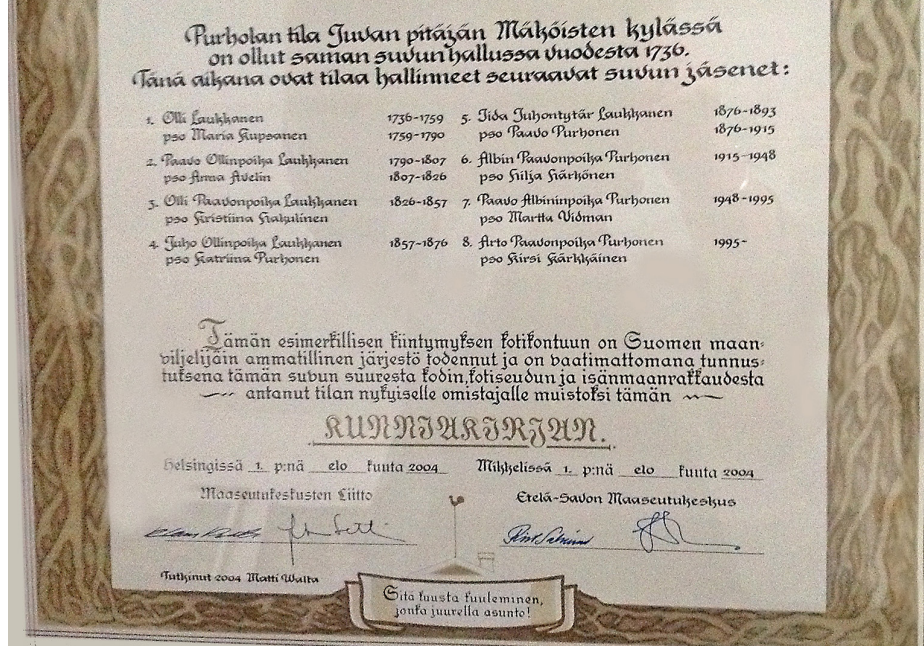 Purholan tila Juvan pitäjän Mäköisten kylässä
on ollut saman suvun hallussa vuodesta 1736.
Tänä aikana ovat tilaa hallinneet seuraavat suvun jäsenet:
1. Olli Laukkanen 1736-1759
pso Maria Kupsanen 1759-1790
2. Paavo Ollinpoika Laukkanen 1790-1807
pso Anna Avelin 1807-1826
3. Olli Paavonpoika Laukkanen 1826-1857
pso Kristiina Hakulinen
4. Juho Ollinpoika Laukkanen 1857-1876
pso Katriina Purhonen
5. Iida Juhontytär Laukkanen 1876-1893
pso Paavo Purhonen 1876-1915
6. Albin Paavonpoika Purhonen 1915-1948
pso Hilja Härkönen
7. Paavo Albininpoika Purhonen 1948-1995
pso Martta Vidman
8. Arto Paavonpoika Purhonen 1995-
pso Kirsi Kärkkäinen
Tämän esimerkillisen kiintymyksen kotikontuun on Suomen maan-
viljelijäin ammatillinen järjestö todennut ja on vaatimattomana tunnus-
tuksena tämän suvun suuresta kodin, kotiseudun ja isänmaanrakkaudesta
antanut tilan nykyiselle omistajalle muistoksi tämän
KUNNIAKIRJAN.
Helsingissä 1. p:nä elo kuuta 2004 Mikkelissä 1. p:nä elo kuuta 2004
Maaseutukeskusten Liitto Etelä-Savon Maaseutukeskus
Tutkinut 2004 Matti Walta
Sitä kuusta kuuleminen,
jonka juurella asunto!